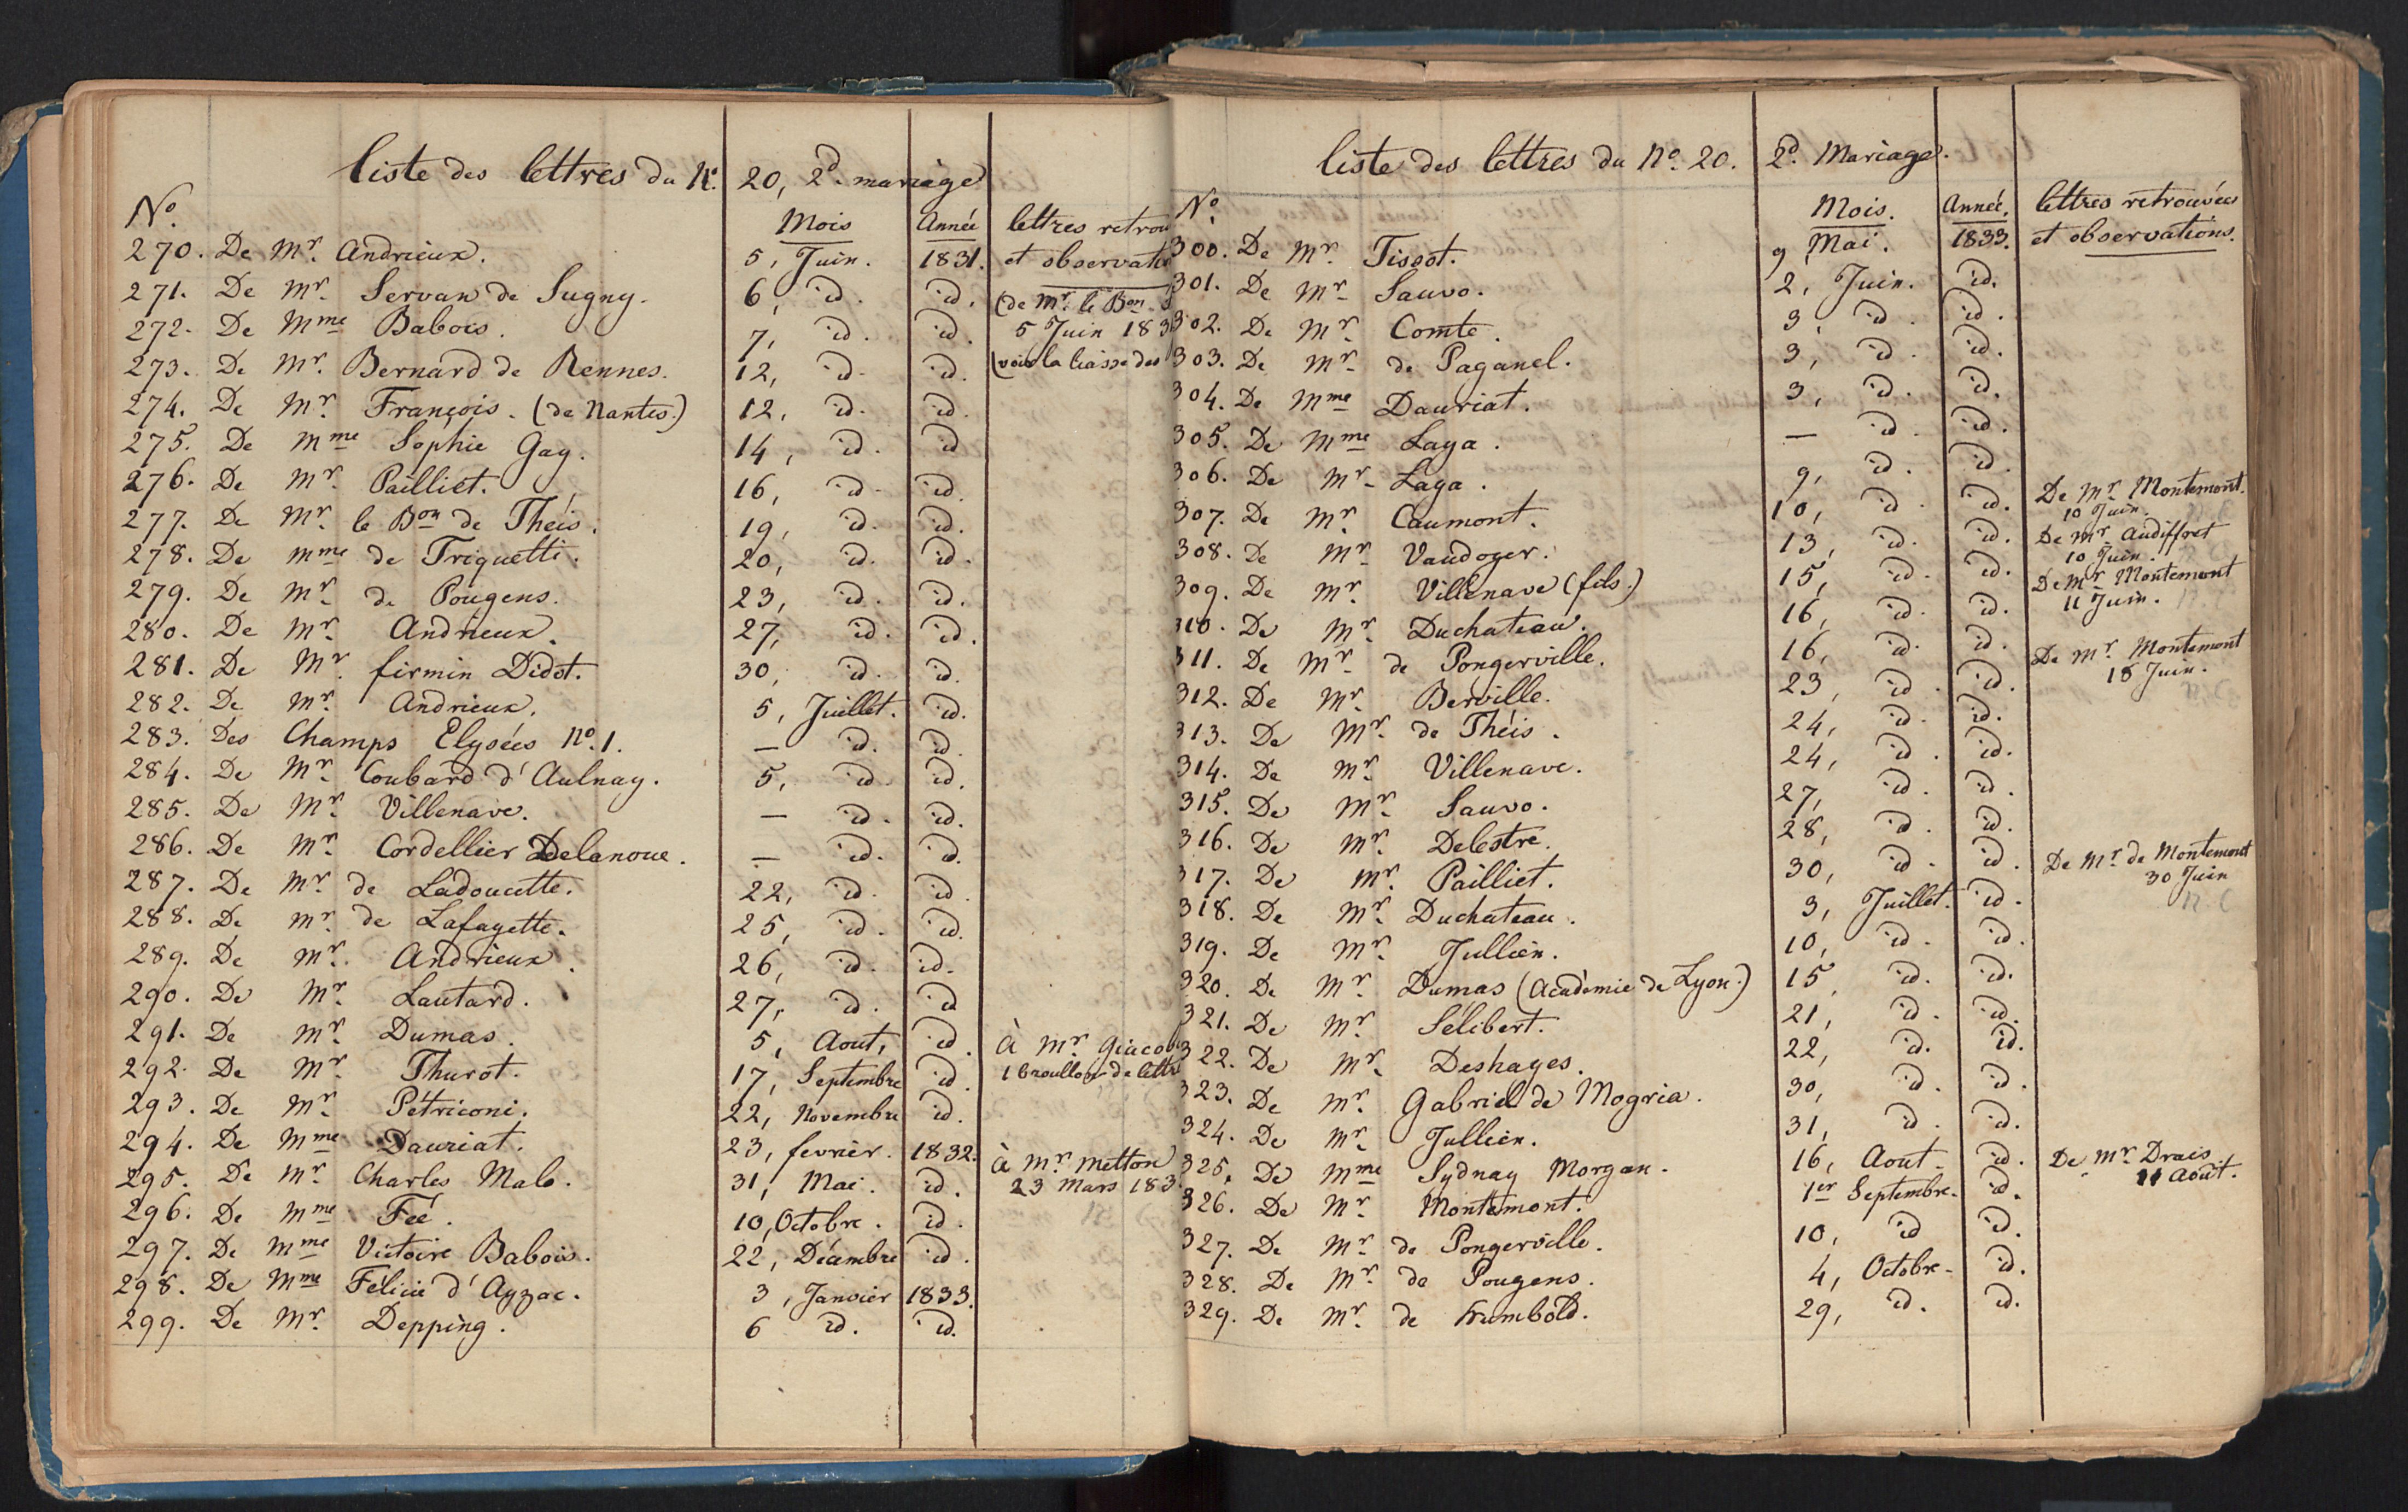 liste des lettres du N.º 20, 2.d mariage
Nº. Mois Année lettres retrou
270. De Mr. Andrieux. 5, Juin. 1831. et observatio
271. De Mr. Servan de Sugny. 6, id. id. (de Mr. le Bon.
272. De Mme Babois. 7, id. id. 5 Juin 183
273. De Mr. Bernard de Rennes. 12, id. id. (voir la liasse des
274. De Mr. François. (de Nantes.) 12, id. id.
275. De Mme Sophie Gay. 14, id. id
276. De Mr. Pailliet. 16, id. id.
277. De Mr. le Bon de Théis. 19, id. id.
278. De Mme de Triquetti. 20, id. id.
279. De Mr. de Pougens. 23, id. id.
280. De Mr. Andrieux. 27, id. id.
281. De Mr. firmin Didot. 30, id. id.
282. De Mr. Andrieux. 5, Juillet. id.
283. Des Champs Elysées Nº. 1. — id. id.
284. De Mr. Coubard d'Aulnay. 5, id. id.
285. De Mr. Villenave. — id. id.
286. De Mr. Cordellier Delanoue. — id. id.
287. De Mr. de Ladoucette. 22, id. id
288. De Mr. de Lafayette. 25, id. id.
289. De Mr. Andrieux. 26, id. id.
290. De Mr. Lautard. 27, id. id
291. De Mr. Dumas. 5, Aout, id. à Mr. Giacco
292. De Mr. Thurot. 17, Septembre id. 1 brouillon de lettr
293. De Mr. Pétriconi. 22, Novembre id.
294. De Mme Dauriat. 23, fevrier. 1832. à Mr. Metton
295. De Mr. Charles Malo. 31, Mai. id. 23 Mars 183
296. De Mme Fée. 10, Octobre. id.
297. De Mme Victoire Babois. 22, Décembre id.
298. De Mme Félicie d'Ayzac. 3, Janvier 1833.
299. De Mr. Depping. 6 id. id.
liste des lettres du Nº. 20. 2.d Mariage.
Nº. Mois. Année. lettres retrouvées
300. De Mr. Tissot. 9 Mai. 1833. et observations.
301. De Mr. Sauvo. 2, Juin. id.
302. De Mr. Comte. 3, id. id.
303. De Mr. de Paganel. 3, id. id.
304. De Mme Dauriat. 3, id. id.
305. De Mme Laya. — id. id.
306. De Mr. Laya. 9, id. id. De Mr. Montemont.
10 Juin.
307. De Mr. Caumont. 10, id. id. De Mr. Audiffret
10 Juin.
308. De Mr. Vaudoyer. 13, id. id. De Mr. Montemont
11 Juin.
309. De Mr. Villenave (fils.) 15, id. id.
310. De Mr. Duchateau. 16, id. id. De Mr. Montemont
18 Juin.
311. De Mr. de Pongerville. 16, id. id.
312. De Mr. Berville. 23, id. id.
313. De Mr. de Théis. 24, id. id.
314. De Mr. Villenave. 24, id. id.
315. De Mr. Sauvo. 27, id. id.
316. De Mr. Delestre. 28, id. id.
317. De Mr. Pailliet. 30, id. id. De Mr. de Montemont
30 Juin
318. De Mr. Duchateau. 3, Juillet. id.
319. De Mr. Jullien. 10, id. id.
320. De Mr. Dumas (Académie de Lyon.) 15, id. id.
321. De Mr. Sélibert. 21, id. id.
322. De Mr. Deshayes. 22, id. id.
323. De Mr. Gabriel de Mogria. 30, id. id.
324. De Mr. Jullien. 31, id. id.
325. De Mme Sydnay Morgan. 16, Aout. id. De Mr. Drais
11 Août.
326. De Mr. Montémont. 1er Septembre. id.
327. De Mr. de Pongerville. 10, id id.
328. De Mr. de Pougens. 4, Octobre. id.
329. De Mr. de Humbold. 29, id. id.